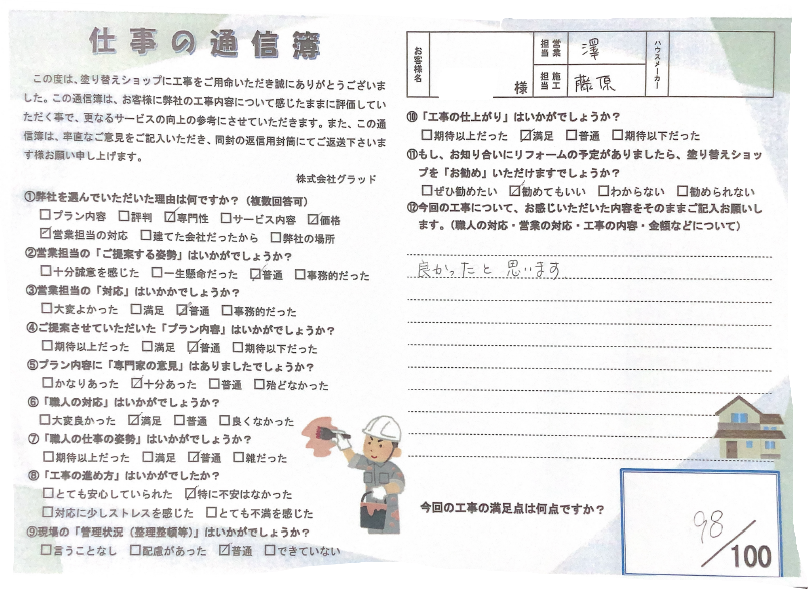 仕事の通信簿
この度は、塗り替えショップに工事をご用命いただき誠にありがとうございま
した。この通信簿は、お客様に弊社の工事内容について感じたままに評価してい
ただく事で、更なるサービスの向上の参考にさせていただきます。また、この通
信簿は、率直なご意見をご記入いただき、同封の返信用封筒にてご返送下さいま
す様お願い申し上げます。
株式会社グラッド
①弊社を選んでいただいた理由は何ですか？（複数回答可）
□プラン内容 □評判 ☑専門性 □サービス内容 ☑価格
☑営業担当の対応 □建てた会社だったから □弊社の場所
②営業担当の「ご提案する姿勢」はいかがでしょうか？
□十分誠意を感じた □一生懸命だった ☑普通 □事務的だった
③営業担当の「対応」はいかかでしょうか？
□大変よかった □満足 ☑普通 □事務的だった
④ご提案させていただいた「プラン内容」はいかがでしょうか？
□期待以上だった □満足 ☑普通 □期待以下だった
⑤プラン内容に「専門家の意見」はありましたでしょうか？
□かなりあった ☑十分あった □普通 □殆どなかった
⑥「職人の対応」はいかがでしょうか？
□大変良かった ☑満足 □普通 □良くなかった
⑦「職人の仕事の姿勢」はいかがでしょうか？
□期待以上だった □満足 ☑普通 □雑だった
⑧「工事の進め方」はいかがでしたか？
□とても安心していられた ☑特に不安はなかった
□対応に少しストレスを感じた □とても不満を感じた
⑨現場の「管理状況（整理整頓等）」はいかがでしょうか？
□言うことなし □配慮があった ☑普通 □できていない
お客様名 様 営業担当 澤 施工担当 藤原 ハウスメーカー
⑩「工事の仕上がり」はいかがでしょうか？
□期待以上だった ☑満足 □普通 □期待以下だった
⑪もし、お知り合いにリフォームの予定がありましたら、塗り替えショッ
プを「お勧め」いただけますでしょうか？
□ぜひ勧めたい ☑勧めてもいい □わからない □勧められない
⑫今回の工事について、お感じいただいた内容をそのままご記入お願いし
ます。（職人の対応・営業の対応・工事の内容・金額などについて）
良かったと思います
今回の工事の満足点は何点ですか？
98/100